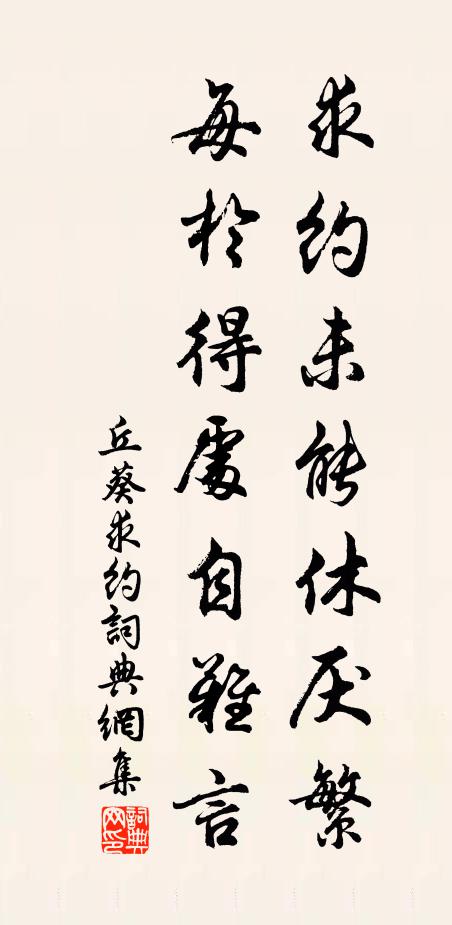 求約未能休厌繁
每於得處自難言
丘葵求約詞典網集
詞典網印